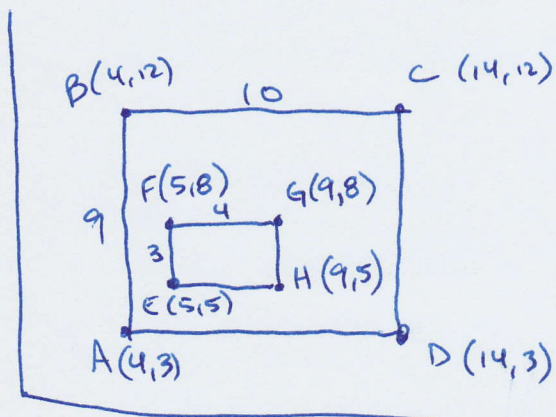 B(4,12)
10
C (14,12)
F(5,8)
4
G(9,8)
9
3
H(9,5)
E(5,5)
A(4,3)
D(14,3)